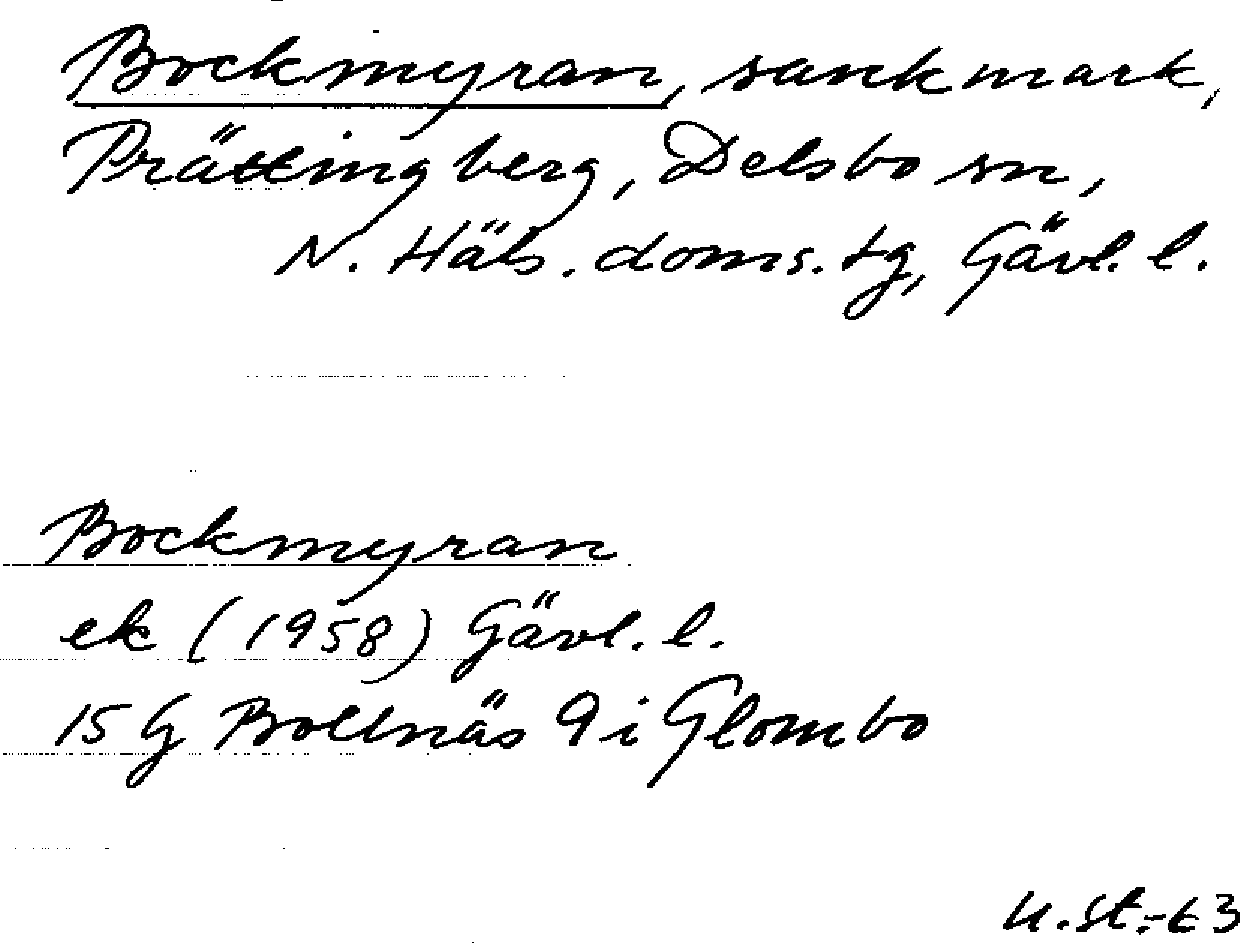 Bockmyran, sankmark,
Prättingberg, Delsbo sn,
N. Häls. doms. tg, Gävl. l.
Bockmyran
ek (1958) Gävl. l.
15 G Bollnäs 9 i Glombo
U. St. -63